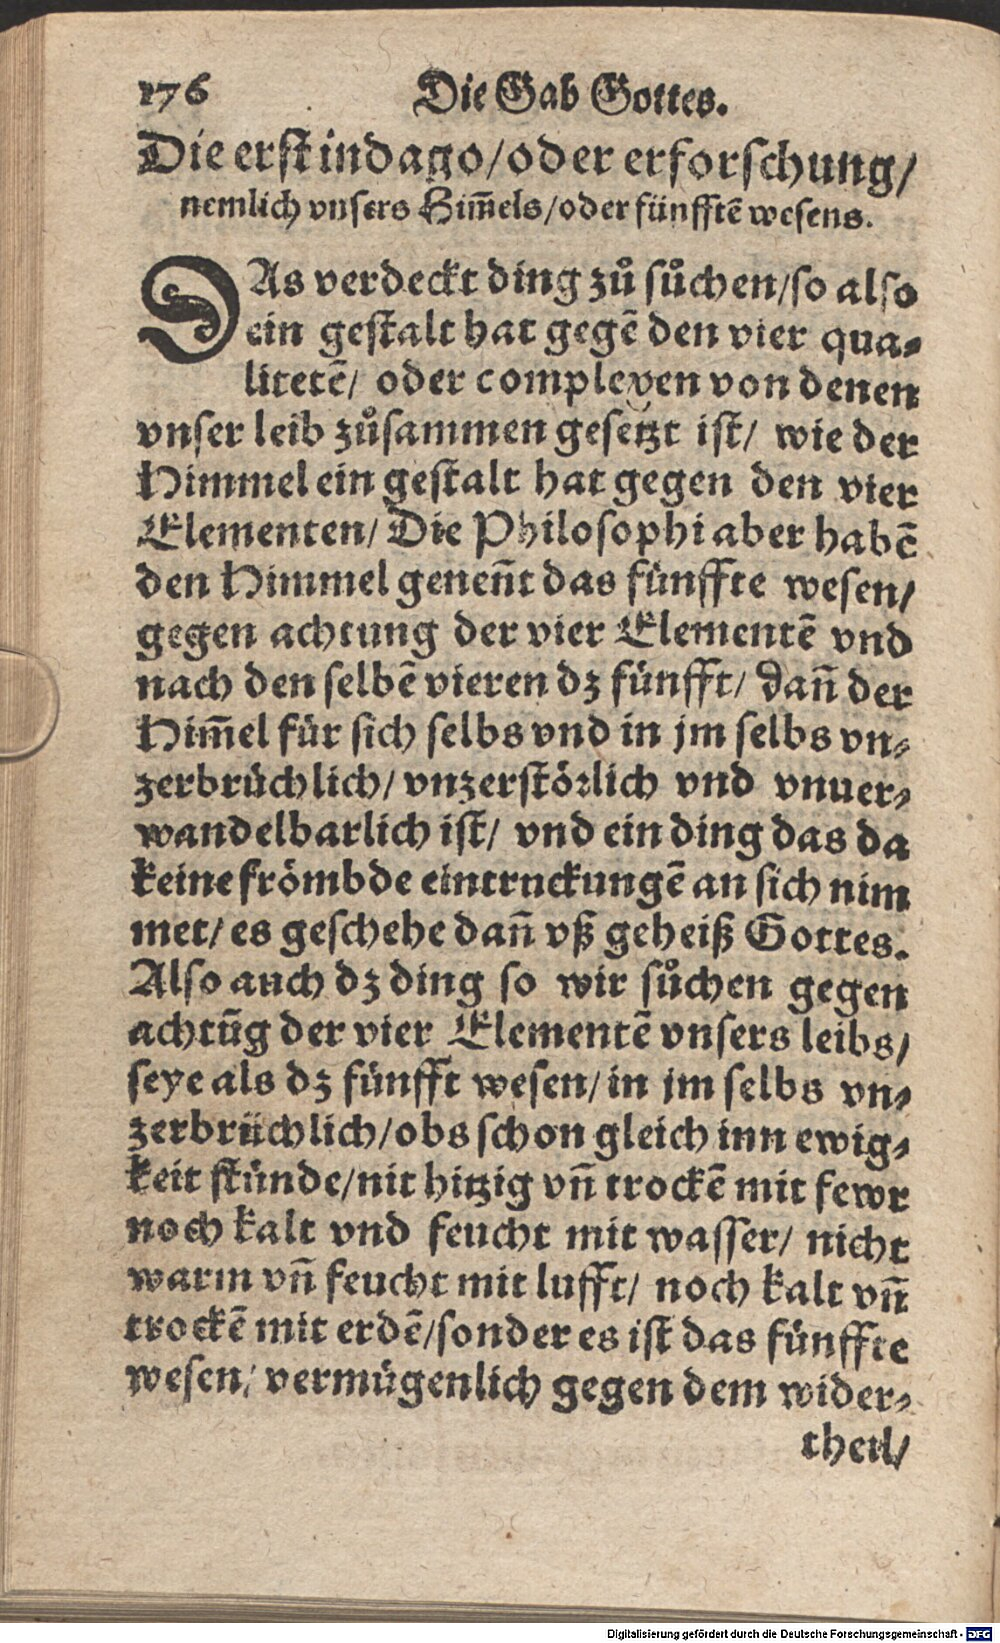 176 Die Gab Gottes.
Die erst indago/oder erforschung/
nemlich vnsers Him̄els/oder fünfftē wesens.
DAs verdeckt ding zů sůchen/so also
ein gestalt hat gegē den vier qua⸗
litetē/ oder complexen von denen
vnser leib zůsammen gesetzt ist/ wie der
Himmel ein gestalt hat gegen den vier
Elementen/ Die Philosophi aber habē
den Himmel genen̄t das fünffte wesen/
gegen achtung der vier Elementē vnd
nach den selbē vieren dz fünfft/ dan̄ der
Him̄el für sich selbs vnd in jm selbs vn⸗
zerbrüchlich/ vnzerstörlich vnd vnuer⸗
wandelbarlich ist/ vnd ein ding das da
keine frömbde eintruckungē an sich nim
met/ es geschehe dan̄ vß geheiß Gottes.
Also auch dz ding so wir sůchen gegen
achtūg der vier Elementē vnsers leibs/
seye als dz fünfft wesen/ in jm selbs vn⸗
zerbrüchlich/obs schon gleich inn ewig⸗
keit stünde/nit hitzig vn̄ trockē mit fewr
noch kalt vnd feucht mit wasser/ nicht
warm vn̄ feucht mit lufft/ noch kalt vn̄
trockē mit erdē/sonder es ist das fünffte
wesen/ vermügenlich gegen dem wider⸗
theil/
Digitalisierung gefördert durch die Deutsche Forschungsgemeinschaft - DFG